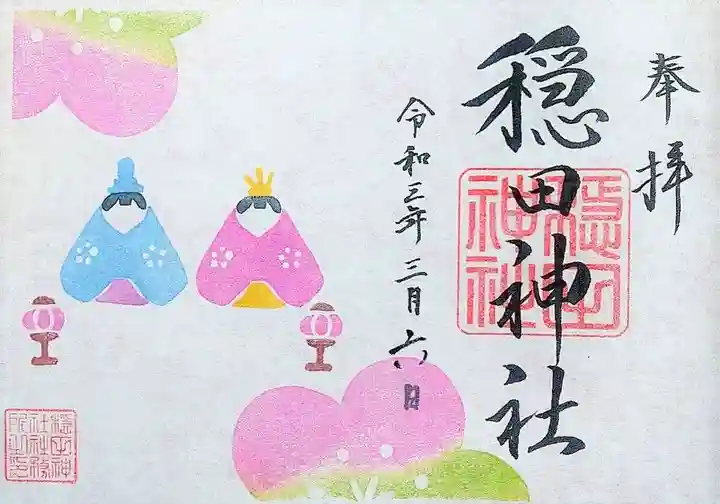 奉拝
穏田神社
穏田神社
令和三年三月六日
穏田神社務所之印